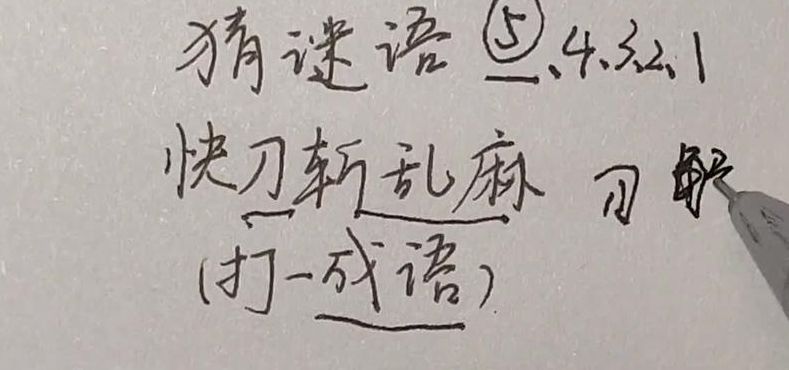 猜谜语 ⑤、4、3、2、1
快刀斩乱麻 刃 解
(打一成语)